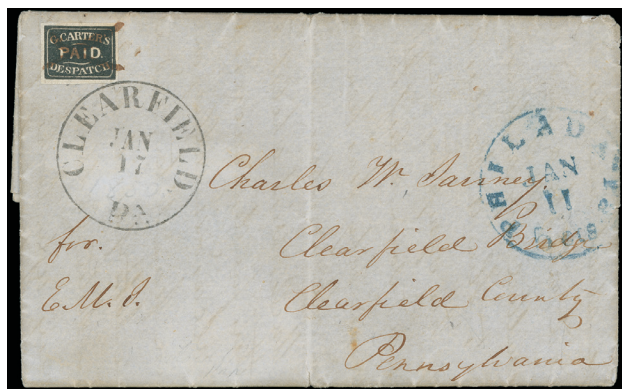 G. CARTER'S
PAID
DESPATCH
CLEARFIELD,
JAN
17
PA
PHILADA
JAN
11
5 cts
Charles W. Janney
for. Clearfield Bridge
E.M.J. Clearfield County
Pennsylvania